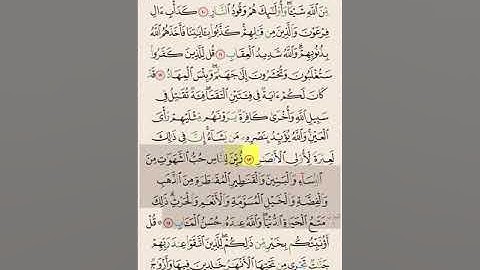 مِّنَ ٱللَّهِ شَيْـًٔا ۖ وَأُو۟لَـٰٓئِكَ هُمْ وَقُودُ ٱلنَّارِ ١٠ كَدَأْبِ ءَالِ
فِرْعَوْنَ وَٱلَّذِينَ مِن قَبْلِهِمْ ۚ كَذَّبُوا۟ بِـَٔايَـٰتِنَا فَأَخَذَهُمُ ٱللَّهُ
بِذُنُوبِهِمْ ۗ وَٱللَّهُ شَدِيدُ ٱلْعِقَابِ ١١ قُل لِّلَّذِينَ كَفَرُوا۟
سَتُغْلَبُونَ وَتُحْشَرُونَ إِلَىٰ جَهَنَّمَ ۚ وَبِئْسَ ٱلْمِهَادُ ١٢ قَدْ
كَانَ لَكُمْ ءَايَةٌ فِى فِئَتَيْنِ ٱلْتَقَتَا ۖ فِئَةٌ تُقَـٰتِلُ فِى
سَبِيلِ ٱللَّهِ وَأُخْرَىٰ كَافِرَةٌ يَرَوْنَهُم مِّثْلَيْهِمْ رَأْىَ
ٱلْعَيْنِ ۚ وَٱللَّهُ يُؤَيِّدُ بِنَصْرِهِۦ مَن يَشَآءُ ۗ إِنَّ فِى ذَٰلِكَ
لَعِبْرَةً لِّأُو۟لِى ٱلْأَبْصَـٰرِ ١٣ زُيِّنَ لِلنَّاسِ حُبُّ ٱلشَّهَوَٰتِ مِنَ
ٱلنِّسَآءِ وَٱلْبَنِينَ وَٱلْقَنَـٰطِيرِ ٱلْمُقَنطَرَةِ مِنَ ٱلذَّهَبِ
وَٱلْفِضَّةِ وَٱلْخَيْلِ ٱلْمُسَوَّمَةِ وَٱلْأَنْعَـٰمِ وَٱلْحَرْثِ ۗ ذَٰلِكَ
مَتَـٰعُ ٱلْحَيَوٰةِ ٱلدُّنْيَا ۖ وَٱللَّهُ عِندَهُۥ حُسْنُ ٱلْمَـَٔابِ ١٤ ۞ قُلْ
أَؤُنَبِّئُكُم بِخَيْرٍ مِّن ذَٰلِكُمْ ۚ لِلَّذِينَ ٱتَّقَوْا۟ عِندَ رَبِّهِمْ
جَنَّـٰتٌ تَجْرِى مِن تَحْتِهَا ٱلْأَنْهَـٰرُ خَـٰلِدِينَ فِيهَا وَأَزْوَٰجٌ